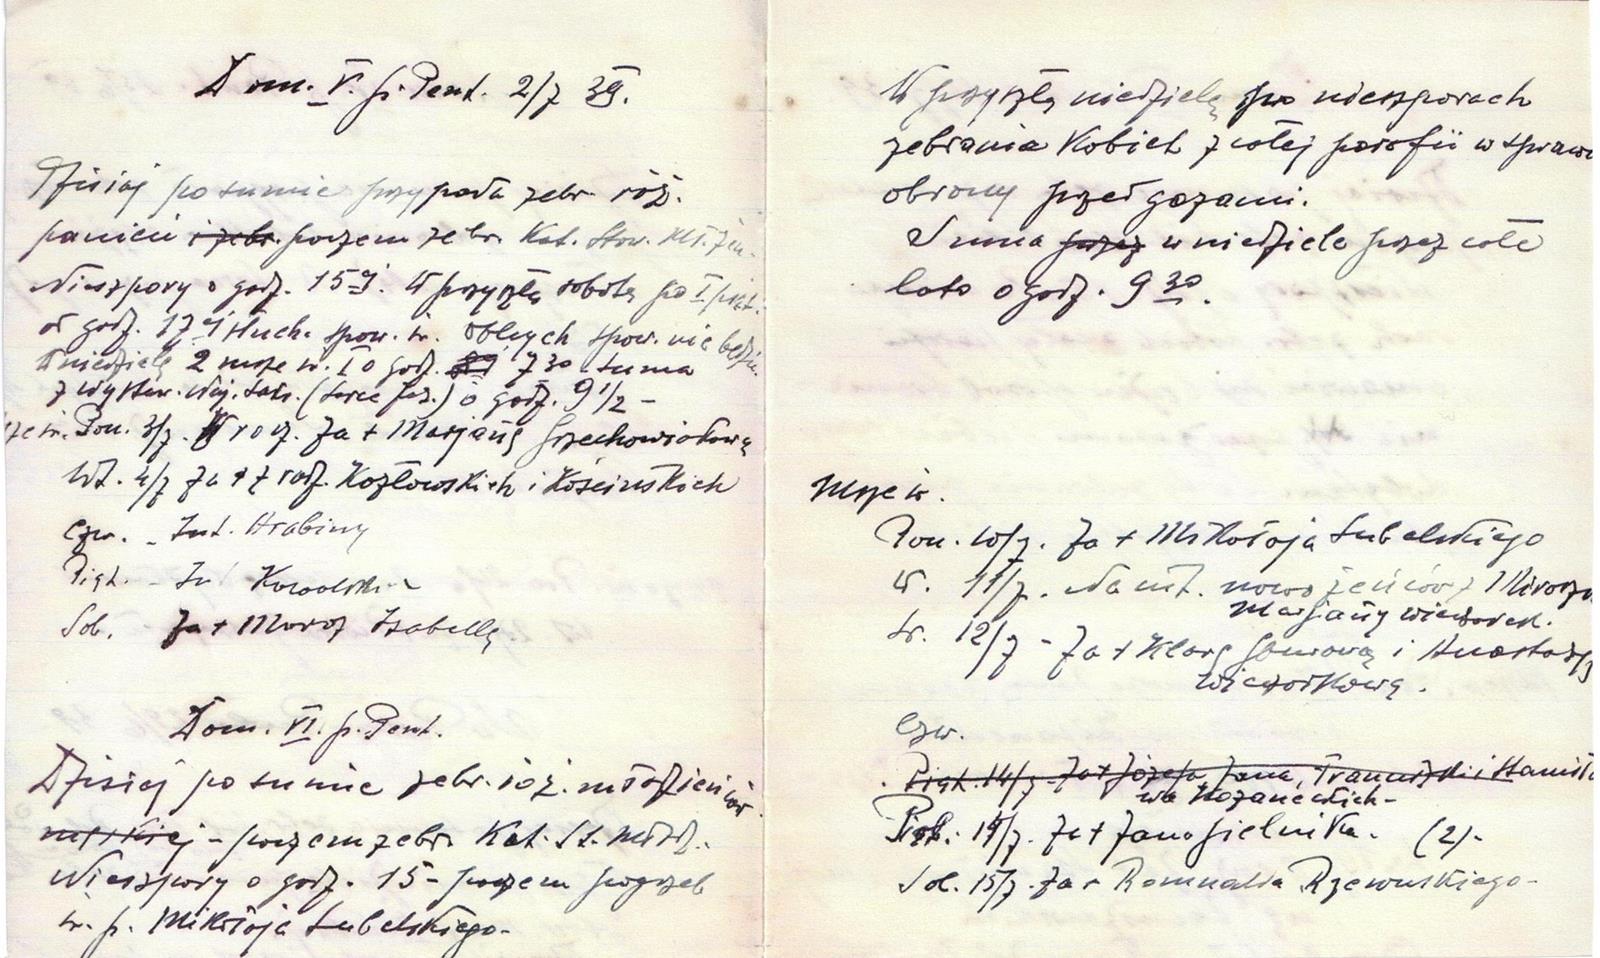 Dom. V. p. Pent. 2/7 39.
Dzisiaj po sumie przypada zebr. róż.
panien i zebr. poczem zebr. Kat. Stow. Mł. Żeń.
Nieszpory o godz. 15-ej. W przyszłą sobotę po I piąt.
od godz. 17-ej słuch. spow. św. obcych spow. nie będzie.
W niedzielę 2 msze św. I o godz. 7 30 suma
z wystaw. Naj. Sakr. (Serce Jez.) o godz. 9 1/2 -
Msze św. Pon. 3/7. W rocz. Za + Marjanę Grzechowiakową
Wt. 4/7 Za + z rodz. Kozłowskich i Kościuskich
Czw. - Int. Hrabiny
Piąt. - Int Kowalska
Sob. Za + Moroz Izabellę
Dom. VI. p. Pent.
Dzisiej po sumie zebr. róż. młodzieńców
męskiej - poczem zebr. Kat. St. Młodz.
Nieszpory o godz. 15 - poczem pogrzeb
ś. p. Mikołaja Lubelskiego -
W przyszłą niedzielę po nieszporach
zebrania Kobiet z całej parafii w sprawie
obrony przed gazami.
Suma przez w niedziele przez całe
lato o godz. 9 30.
Msze św.
Pon. 10/7. Za + Mikołaja Lubelskiego
W. 11/7. Na int. nowożeńców z
Marjany Wieczorek.
Śr. 12/7 - Za + Klarę i
Wieczorkową.
Czw.
Piąt. 14/7 - Za + Józefa Jana, Franciszki i Stanisła
wa Kozaneckich -
Piąt. 14/7. Za + Jana Sielnika. (2).
Sob. 15/7. Za + Romualda Rzewuskiego -